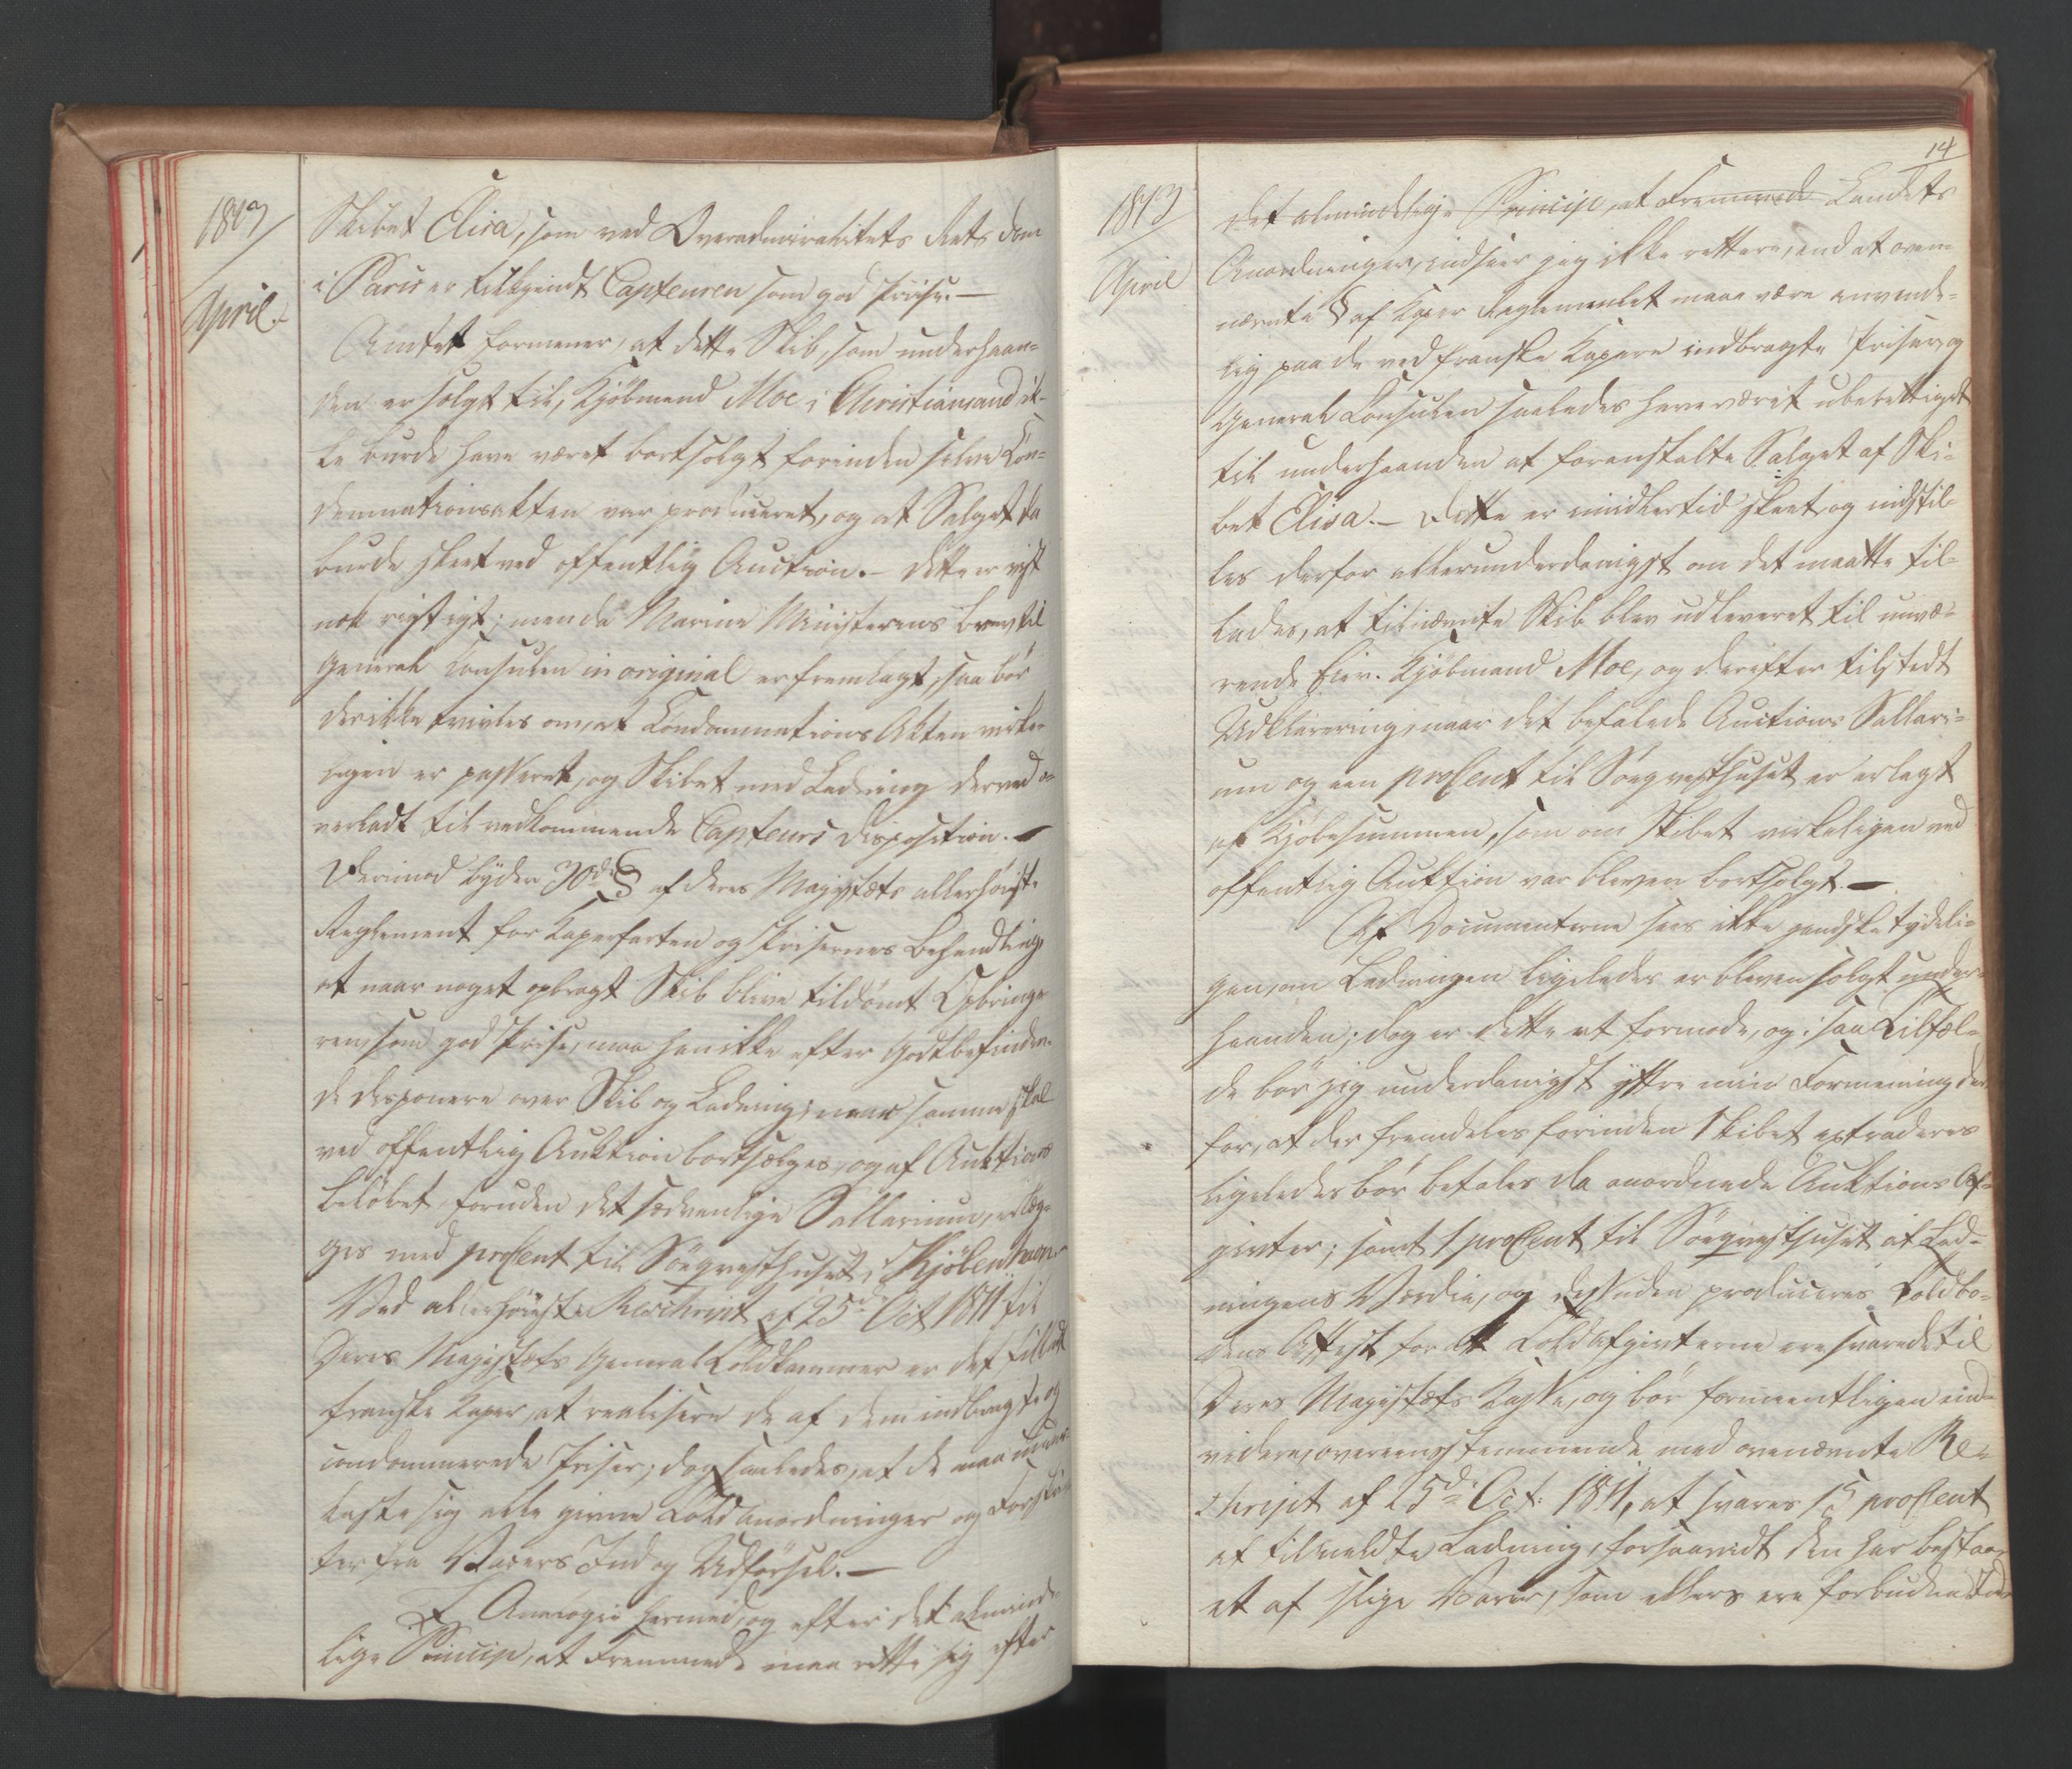 1813
April.
Skibet Elisa, som ved Overadmiralitets Rets Dom
i Paris er tilkjendt Capteuren som god Priise.—
Amtet formener, at dette Skib, som underhaan-
den er solgt til, Kjöbmand Moe i Christiansand ik-
ke burde have været bortsolgt forinden selve Con-
demnationsakten var produceret, og at Salget da
burde skeet ved offentlig Auction.— Dette er vist
nok rigtigt; men da Marine Ministerens Brev til
General Consulen in original er fremlagt, saa bör
der ikke tvivles om, at Condamnations Akten virke-
ligen er passeret, og Skibet med Ladning derved o-
verladt til vedkommende Capteurs Disposition.—
Derimod byder 70de § af Deres Majestæts allerhöist
Reglement for Kaperfarten og Prisernes Behandling,
at naar noget opbragt Skib blive tildömt Opbringe-
ren, som god Prise, maa han ikke efter Godtbefinden-
de disponere over Skib og Ladning; men samme skal
ved offentlig Auktion bortsælges, og af Auktions
Belöbet, foruden det sædvanlige Sallarium, erlæg-
ges med pro Cent til Söeqvesthuset i Kjöbenhavn.
Ved allerhöieste Rescript af 25de Oct 1811 til
Deres Majestæts General Toldkammer er det tilladt
franske Kaper, at realisere de af dem indbragte og
condommerede Priser; dog saaledes, at de maa under-
kaste sig alle givne Toldanordninger og Forskrif-
ter fra Varers Ind og Udförsel.—
I Analogie hermed, og efter det alminde-
lige Princip, at Fremmede maa rette sig efter
14
1813
April
det almindelige Princip, at Fremmede Landets
Anordninger, indseer jeg ikke rettere, end at oven-
nævnte § af Kaper Reglementet maae være anvende-
lig paa de ved franske Kapere indbragte Priser, og
General Consulen saaledes have været uberettiget
til underhaanden at foranstalte Salget af Ski-
bet Elisa.— Dette er imidlertid skeet, og indstil-
les derfor allerunderdanigst om det maatte til-
lades, at tilnævnte Skib blev udleveret til nuvæ-
rende Eier. Kjöbmand Moe, og derefter tilstedt
Udklarering, naar det befalede Auctions Sallari-
um og een pro Cent til Söeqvesthuset er erlagt
af Kjöbesummen, som om Skibet virkeligen ved
offentlig Auktion var bleven bortsolgt.—
Af Documenterne sees ikke gandske tydeli-
gen, om Ladningen ligeledes er bleven solgt under-
haanden; dog er dette at formode, og i saa Tilfæl-
de bör jeg underdanigst yttre min Formening der-
for, at der fremdeles forinden Skibet extraderes
ligeledes bör betales de anordnede Auktions Af-
givter; samt 1 pro Cent til Söeqvesthuset af Lad-
ningens Værdie, og desuden produceres Toldbo-
dens Attest for at Toldafgivterne ere svarede til
Deres Majestæts Kasse, og bör formeentligen end-
videre, overeensstemmende med ovennævnte Re-
skript af 25de Oct: 1811, at svares 15 pro Cent
af tilmeldte Ladning, forsaavidt den har bestaa-
et af slige Varer, som ellers ere forbudne